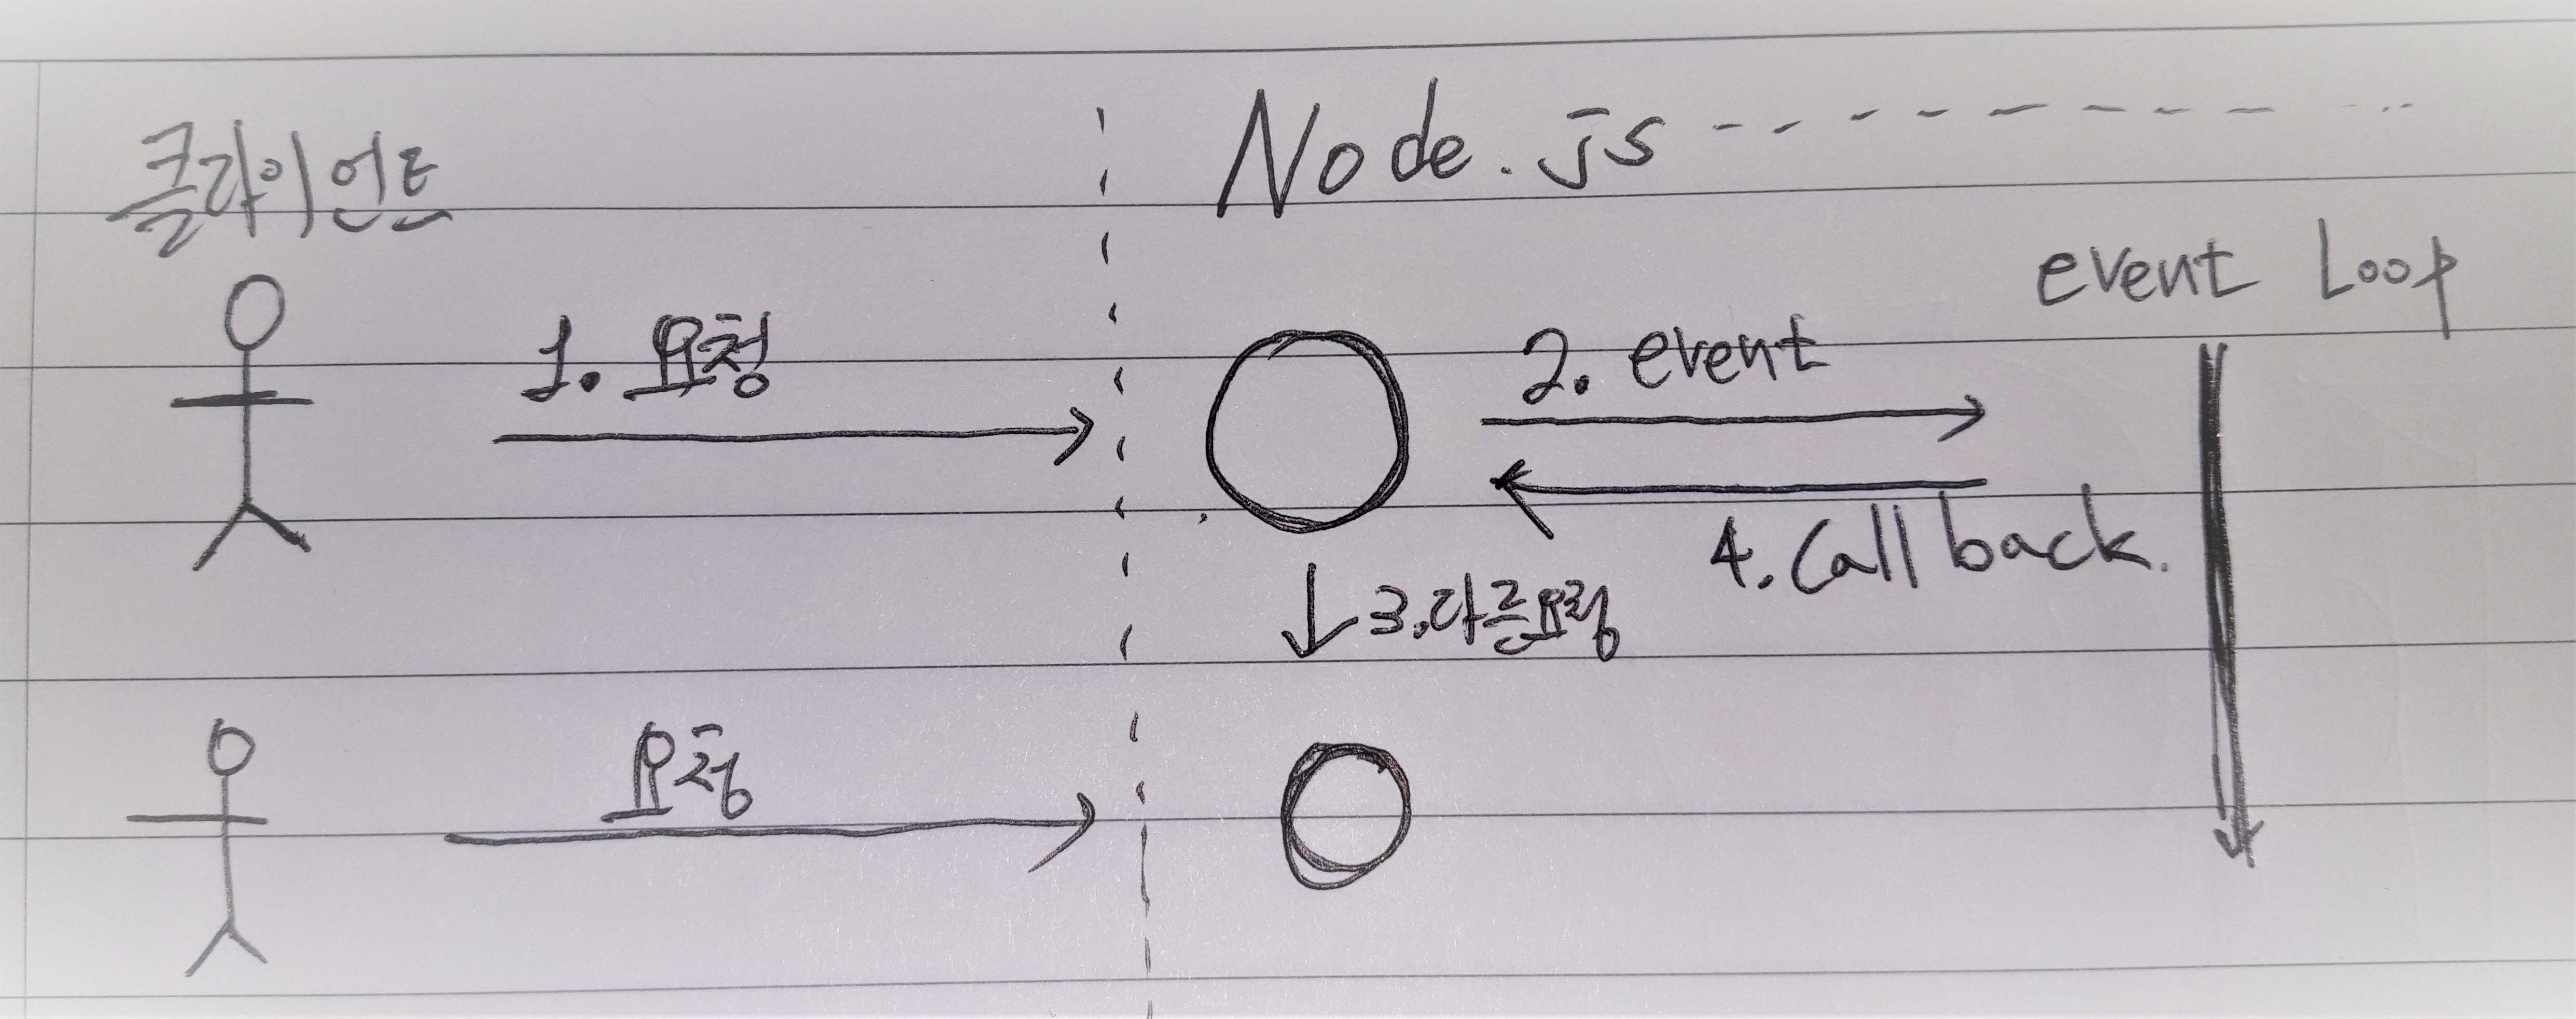 클라이언트
Node.js
event Loop
1. 요청
2. event
4. Call back.
3. 다른요청
요청